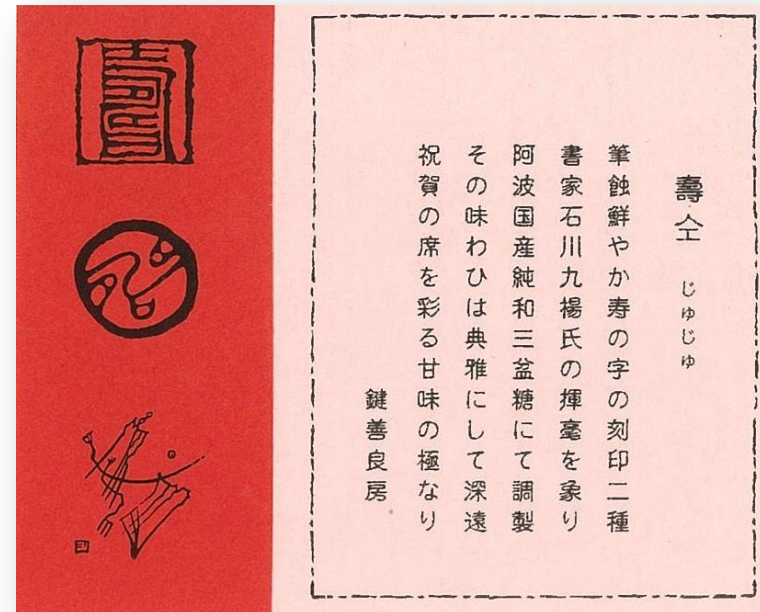 壽仝 じゅじゅ
筆蝕鮮やか寿の字の刻印二種
書家石川九楊氏の揮毫を象り
阿波国産純和三盆糖にて調製
その味わひは典雅にして深遠
祝賀の席を彩る甘味の極なり
鍵善良房